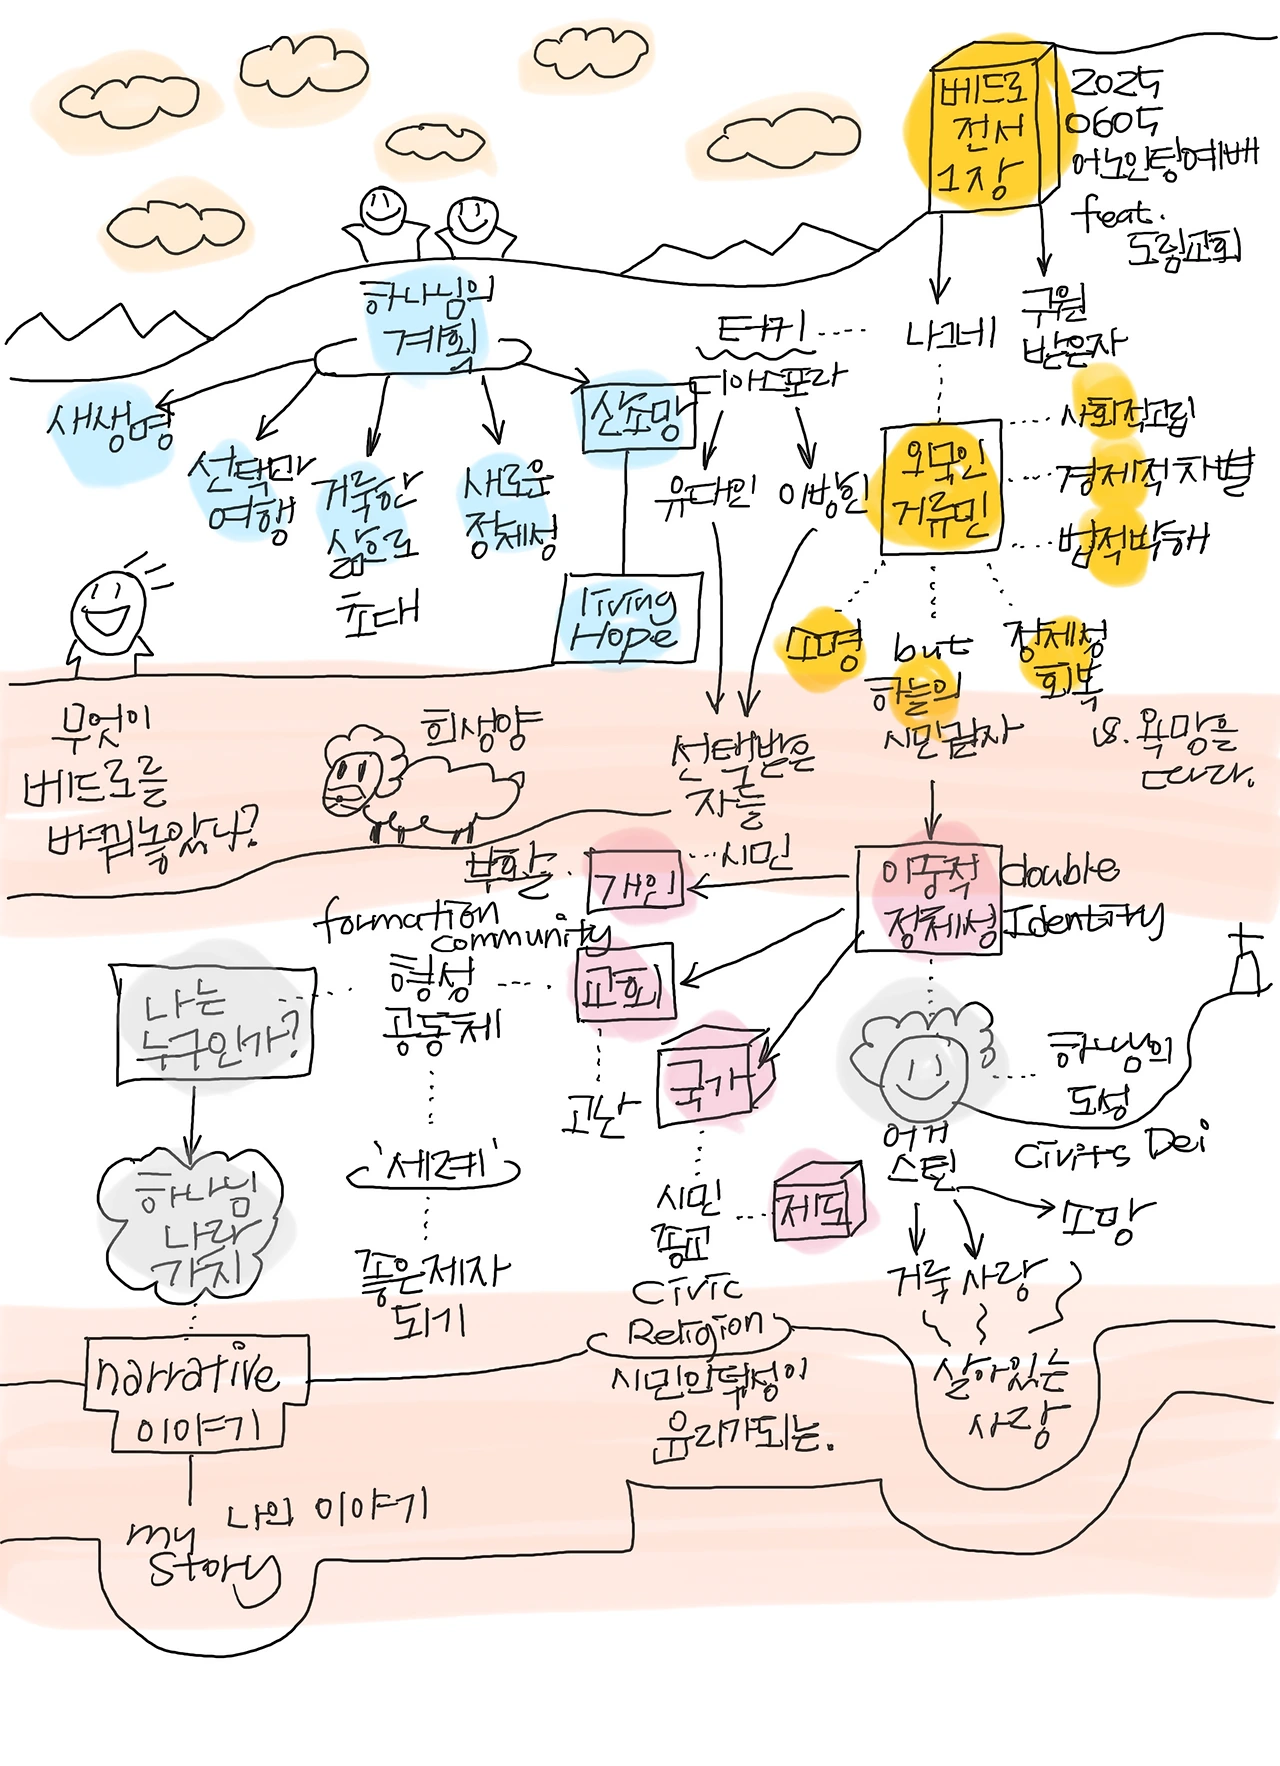 베드로
전서
1장
2025
0605
어노인팅예배
feat.
도림교회
나그네
구원
받은자
터키
디아스포라
유대인
이방인
선택받은
자들
외국인
거류민
사회적고립
경제적차별
법적박해
소명
but
하늘의
시민권자
정체성
회복
vs. 욕망을
따라.
하나님의
계획
새생명
선택한
여행
거룩한
삶으로
초대
새로운
정체성
산소망
living
Hope
무엇이
베드로를
바꿔놓았나?
희생양
부활
이중적
정체성
double
Identity
개인
시민
교회
formation
community
형성
공동체
고난
'세례'
좋은제자
되기
나는
누구인가?
하나님
나라
가치
narrative
이야기
나의 이야기
my
story
국가
시민
종교
제도
civic
Religion
유리가되는.
어거
스틴
하나님의
도성
Civits Dei
소망
거룩 사랑
살아있는
사랑